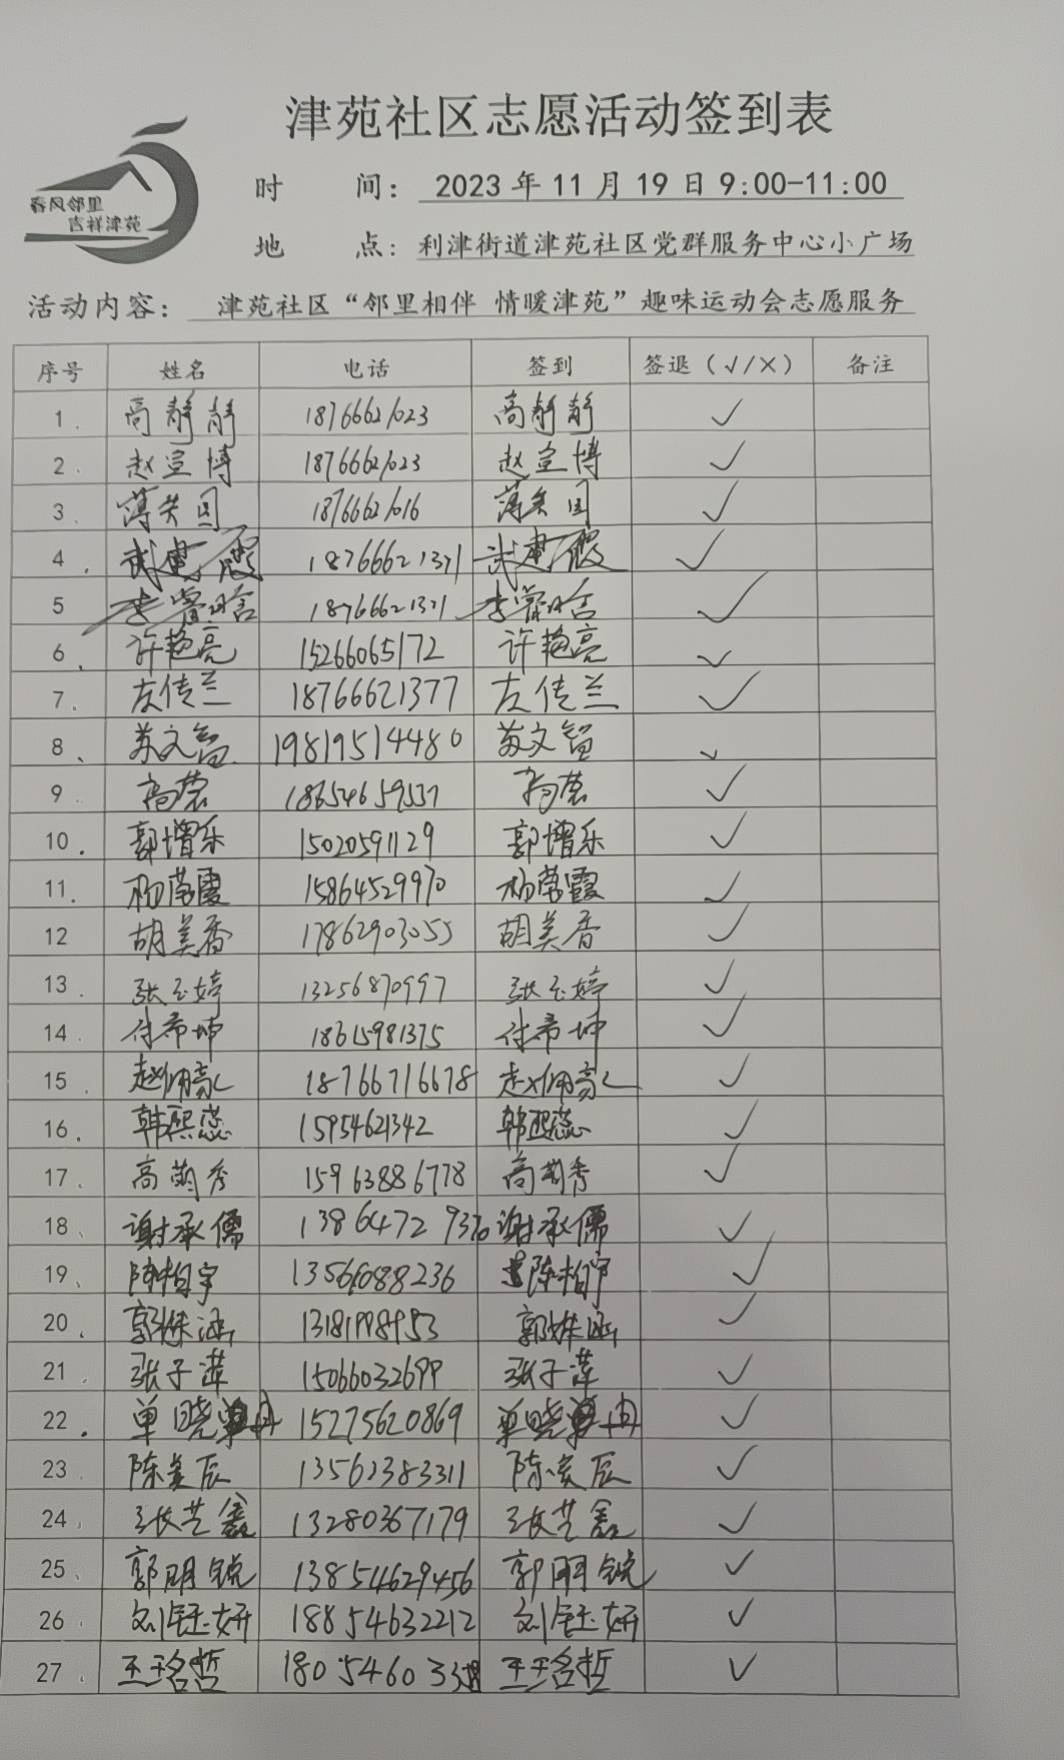 津苑社区志愿活动签到表
春风邻里
吉祥津苑
时 间: 2023年11月19日9:00-11:00
地 点: 利津街道津苑社区党群服务中心小广场
活动内容: 津苑社区“邻里相伴 情暖津苑”趣味运动会志愿服务
序号 姓名 电话 签到 签退(√/×) 备注
1. 高静静 18766621023 高静静 √
2. 赵宣博 18766621023 赵宣博 √
3. 薄关国 18766621016 薄关国 √
4. 武建霞 18766621371 武建霞 √
5 李睿晗 18766621371 李睿晗 √
6. 许艳亮 15266065172 许艳亮 √
7. 左传兰 18766621377 左传兰 √
8、 苏文智 19819514480 苏文智 √
9. 18654659537 √
10. 郭增乐 15020591129 郭增乐 √
11. 杨营霞 15864529970 杨营霞 √
12 胡美香 17862903055 胡美香 √
13. 张玉婷 13256870997 张玉婷 √
14. 付希坤 18615981375 付希坤 √
15. 18766716678 √
16. 韩熙蕊 15954621342 韩熙蕊 √
17、 高萌秀 15963886778 高萌秀 √
18、 谢承儒 13864729370 谢承儒 √
19、 陈柏宇 13561088236 陈柏宇 √
20. 郭姝涵 郭姝涵 √
21. 张子萍 15066032699 张子萍 √
22. 单晓丹 15275620869 单晓丹 √
23、 陈美辰 13562383311 陈美辰 √
24. 张芝鑫 13280367179 张芝鑫 √
25、 郭明锐 13854629456 郭明锐 √
26. 刘钰妍 18854632212 刘钰妍 √
27. 王珞哲 王珞哲 √